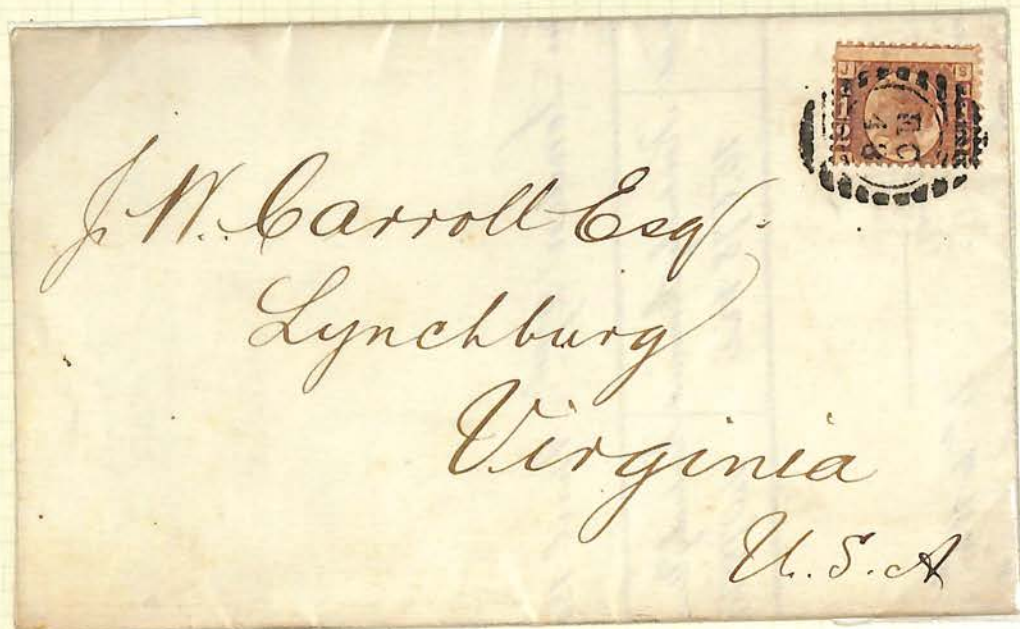 J. W. Carroll Esqr.
Lynchburg
Virginia
U. S. A
J S
EC
48